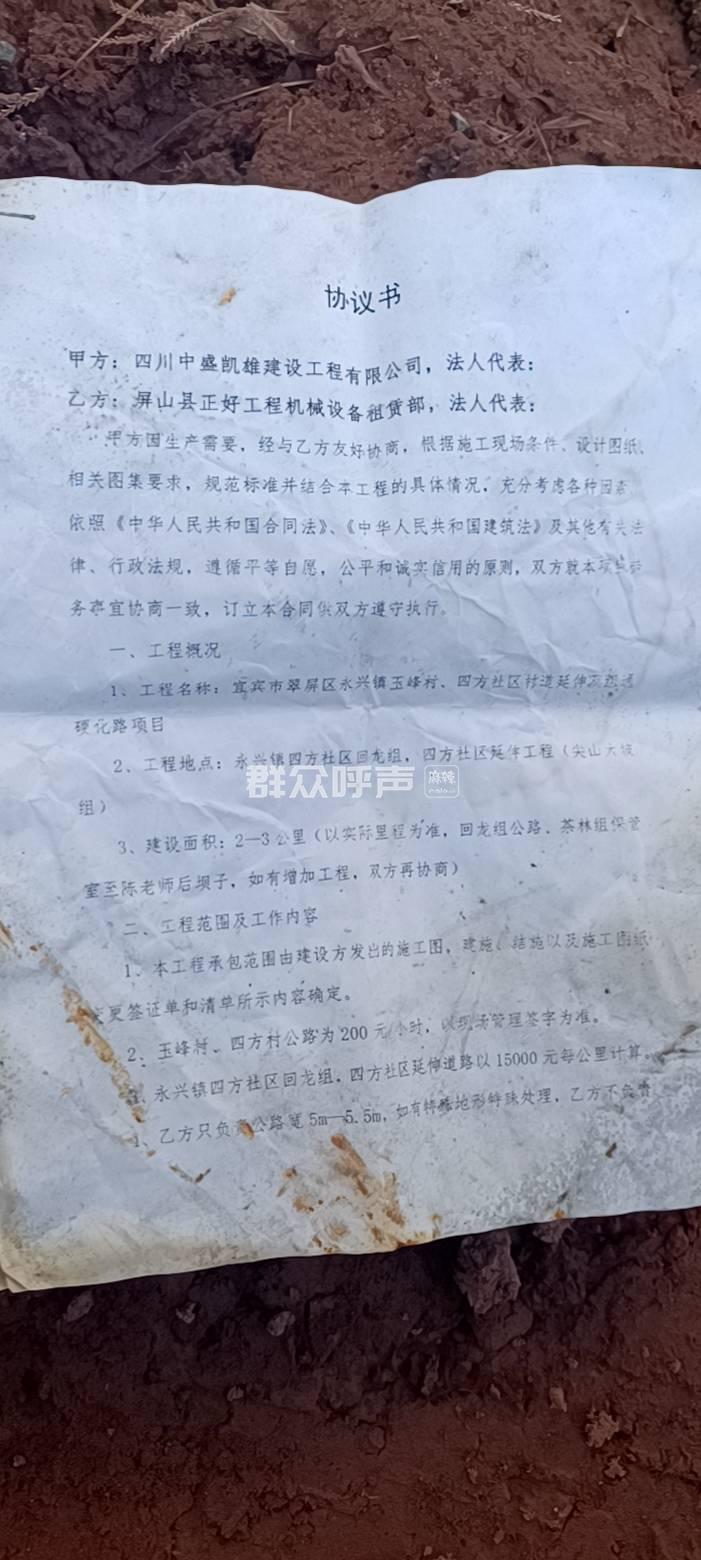 协议书
甲方：四川中盛凯雄建设工程有限公司，法人代表：
乙方：屏山县正好工程机械设备租赁部，法人代表：
甲方因生产需要，经与乙方友好协商，根据施工现场条件、设计图纸、
相关图集要求，规范标准并结合本工程的具体情况，充分考虑各种因素
依照《中华人民共和国合同法》、《中华人民共和国建筑法》及其他有关法
律、行政法规，遵循平等自愿，公平和诚实信用的原则，双方就本项
务事宜协商一致，订立本合同供双方遵守执行。
一、工程概况
1、工程名称：宜宾市翠屏区永兴镇玉峰村、四方社区村道延伸
硬化路项目
2、工程地点：永兴镇四方社区回龙组，四方社区延伸工程（尖山大坡
组）
群众呼声
麻辣
3、建设面积：2—3公里（以实际里程为准，回龙组公路、茶林组保管
室至陈老师后坝子，如有增加工程，双方再协商）
二、工程范围及工作内容
1、本工程承包范围由建设方发出的施工图，建施、结施以及施工图纸
变更签证单和清单所示内容确定。
2、玉峰村、四方村公路为200元/小时，以现场管理签字为准。
永兴镇四方社区回龙组，四方社区延伸道路以15000元每公里计算。
、乙方只负责公路宽5m—5.5m，如有特殊地形特殊处理，乙方不负责